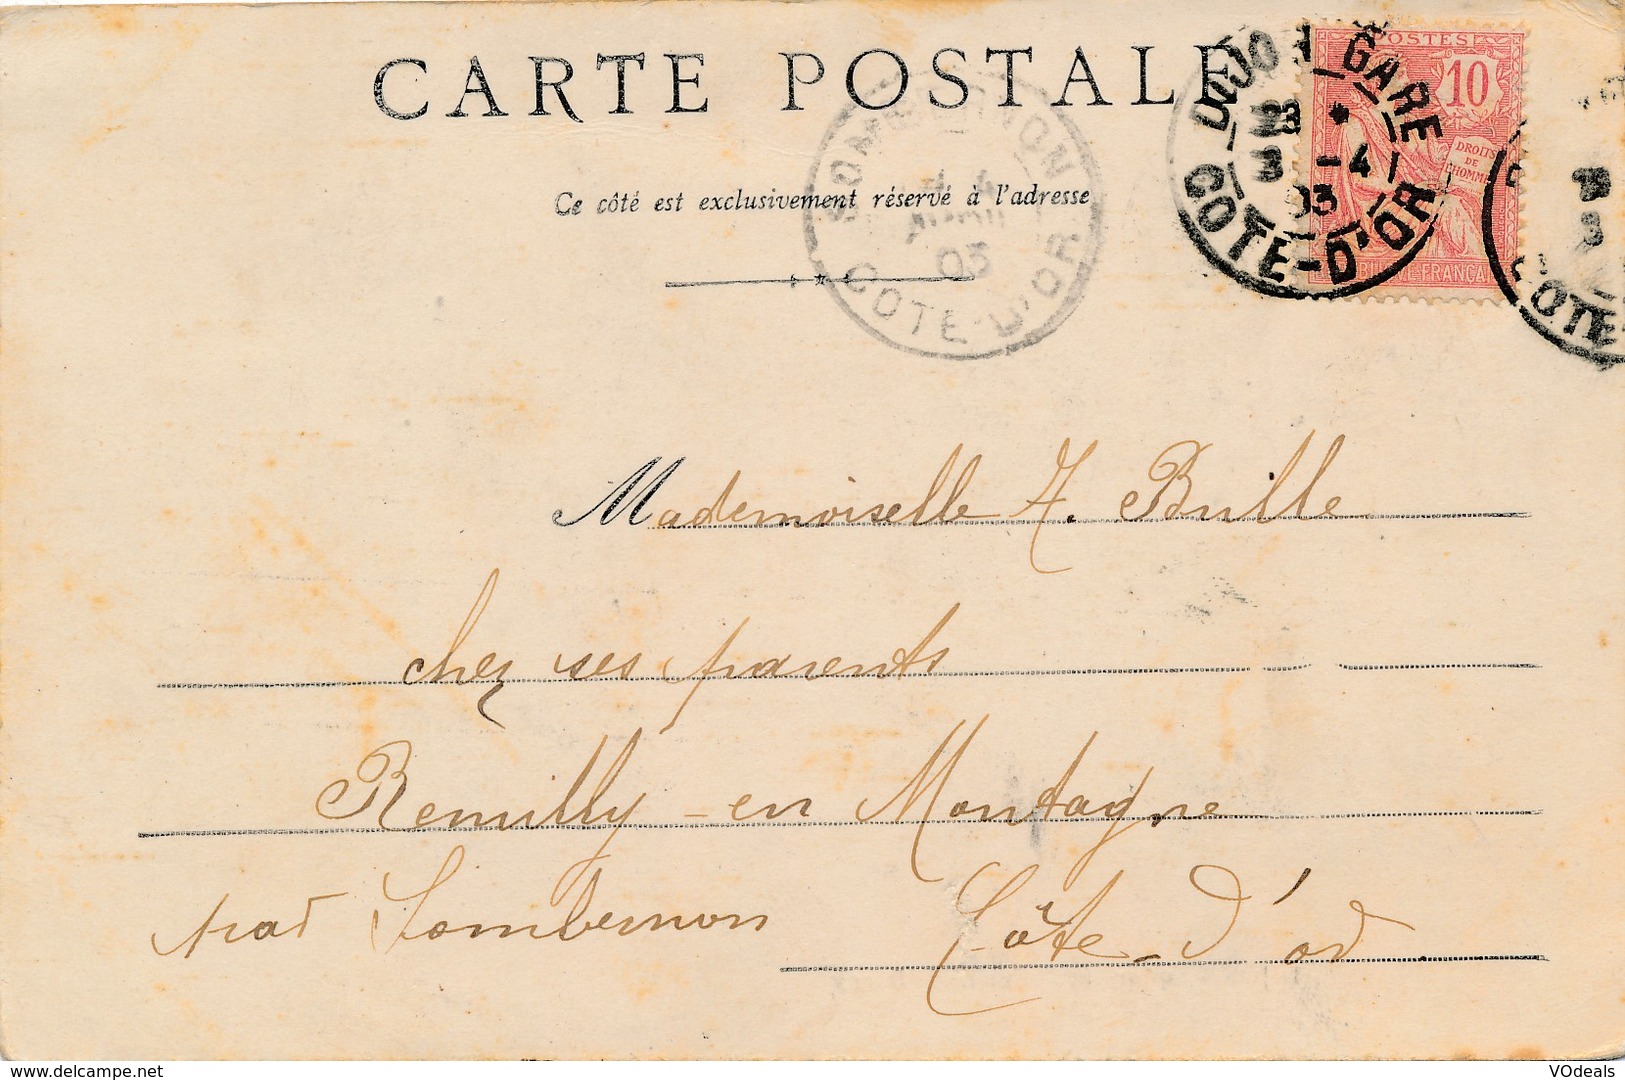 CARTE POSTALE
Ce côté est exclusivement réservé à l'adresse
SOMBERNON
4 4
AVRIL
03
COTE-D'OR
DIJON GARE
3 -4
03
COTE-D'OR
POSTES
10
DROITS
DE
L'HOMME
FRANÇAISE
COTE
Mademoiselle A. Bulle
chez ses parents
Remilly-en Montagne
par Sombernon Côte-d'or
VOdeals